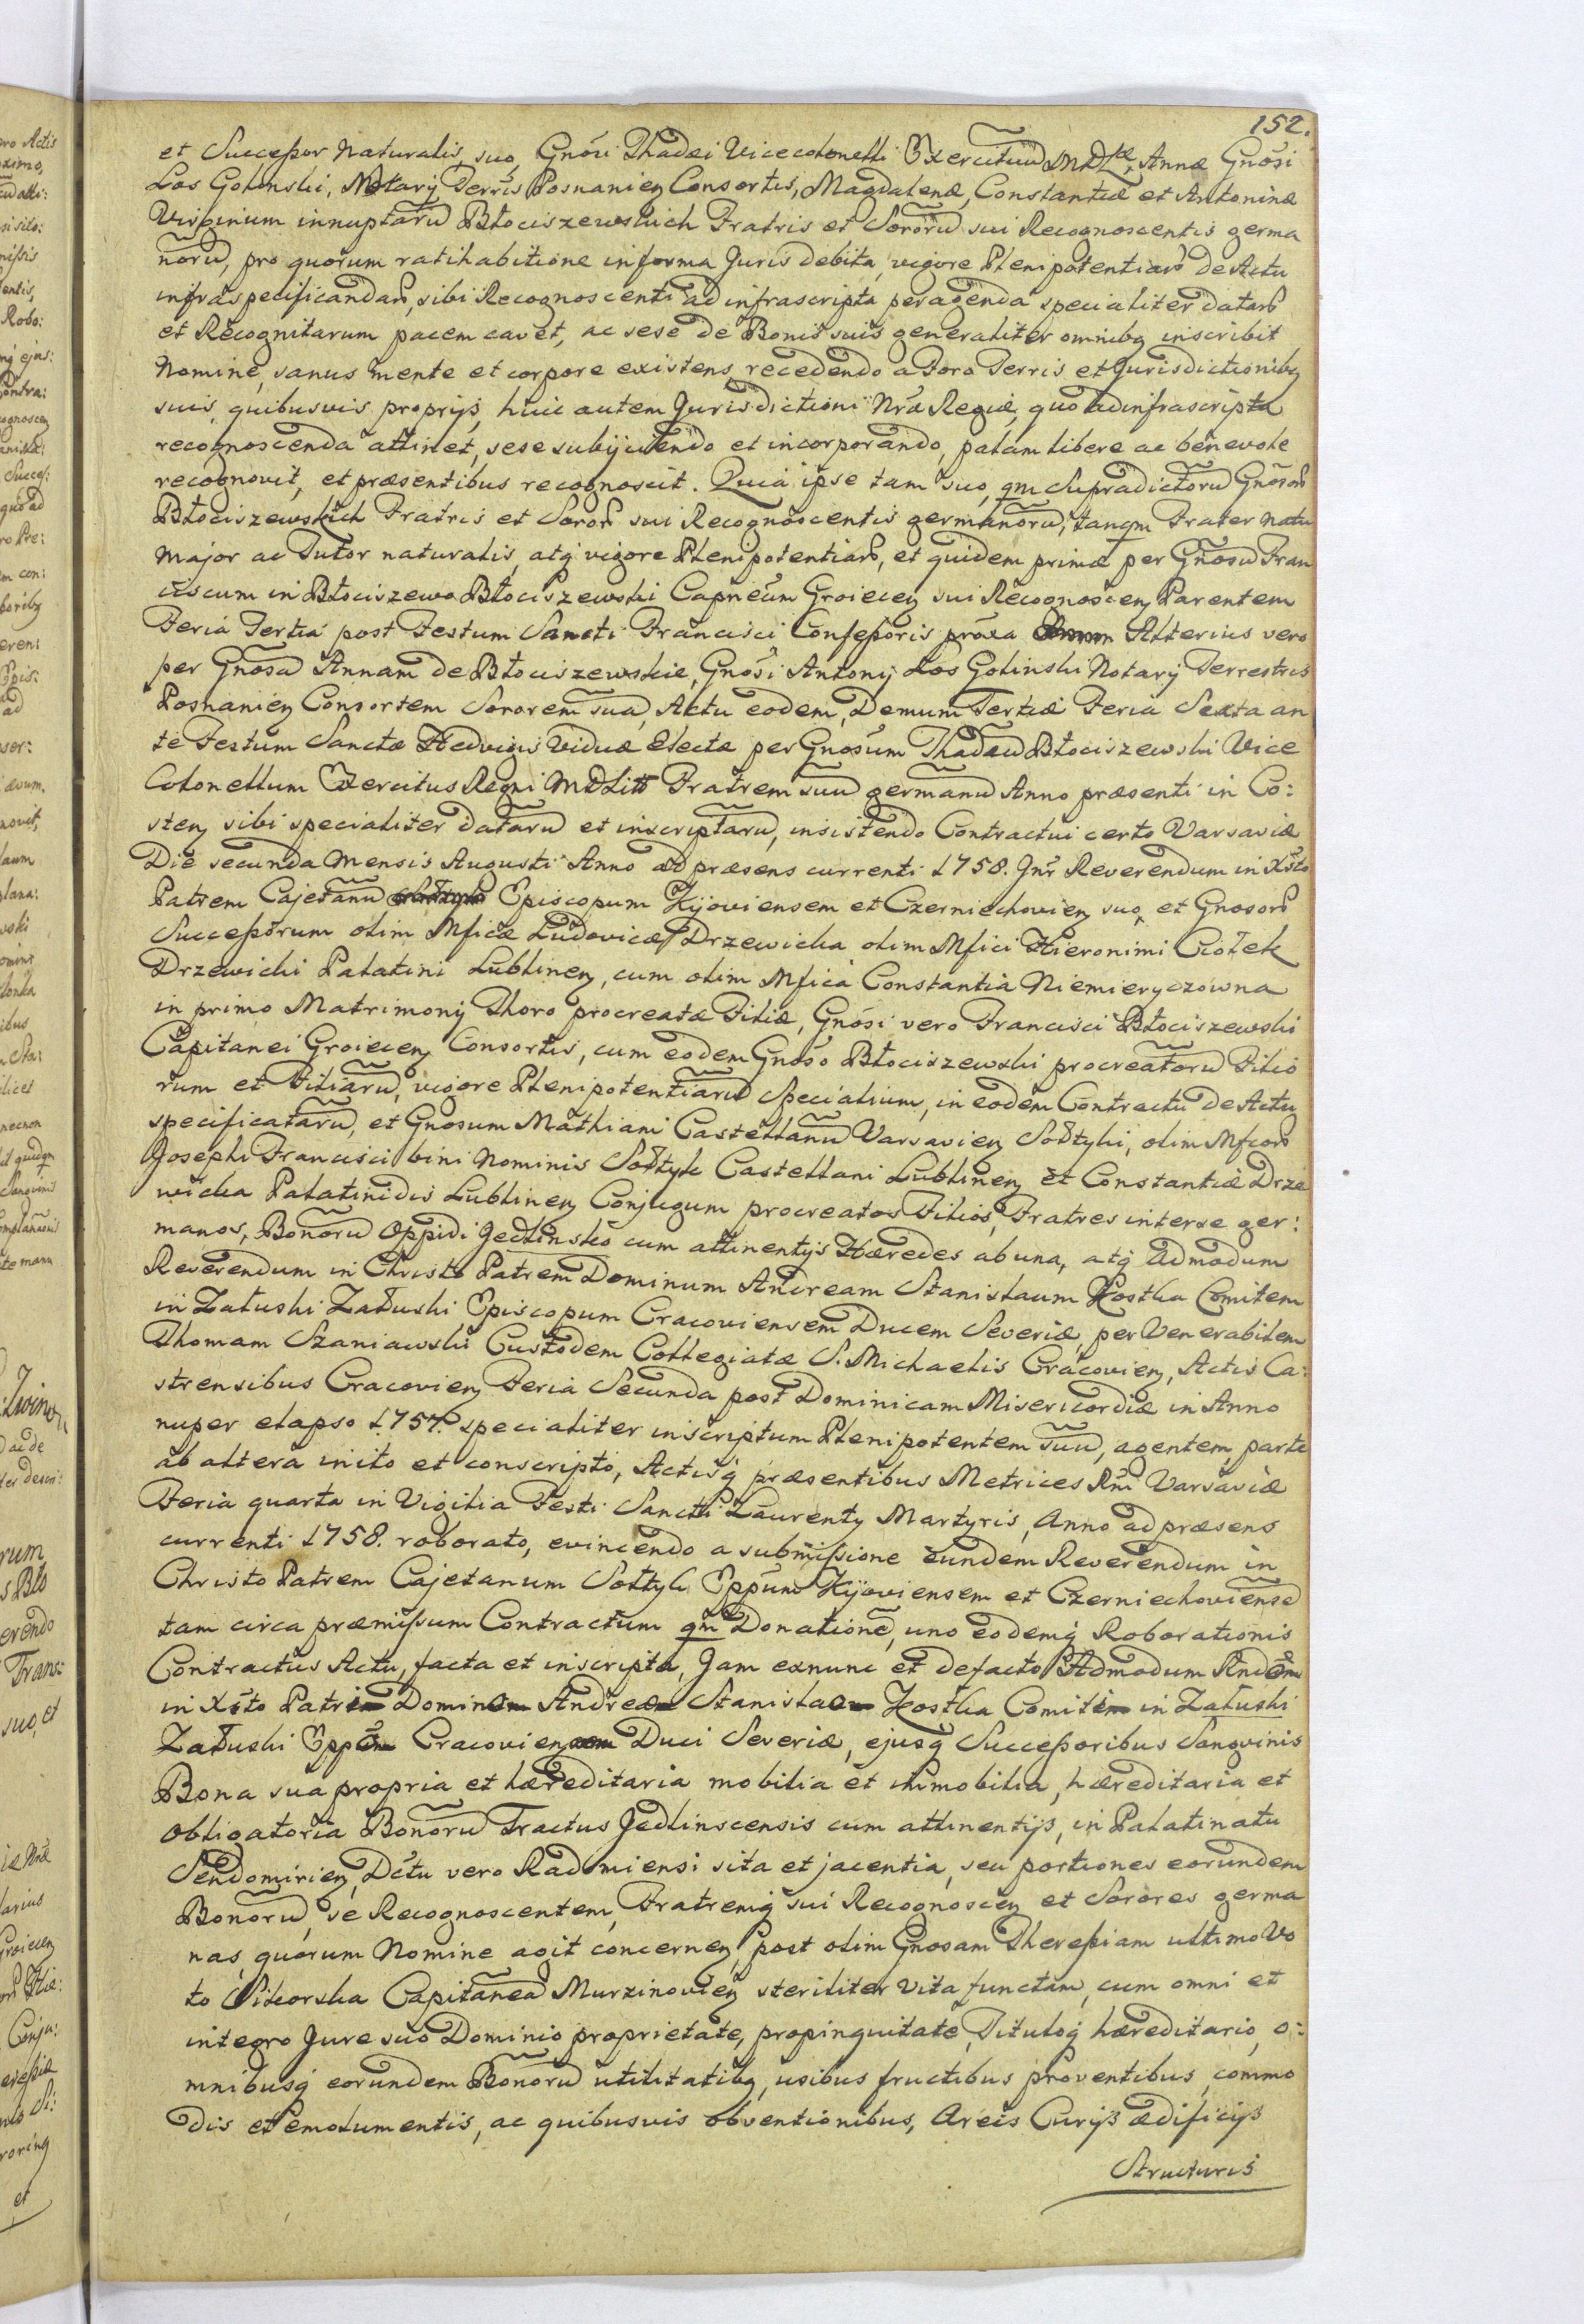 152.
et Successor Naturalis, suo, Gnósi Thadæi Vicecolonelli Exercituũ M.D.L. Annæ Gnósi
Los Golinski, Notarÿ Terris Posnanien Consortis, Magdalenæ, Constantiæ et Antoninæ
Virginum innuptarũ Błociszewskich Fratris et Sororũ sui Recognoscentis germa
norũ, pro quorum ratihabitione in forma Juris debita, vigore Plenipotentiarũ de Actu
infra specificandarũ, sibi Recognoscenti ad infrascripta peragenda specialiter datarũ
et Recognitarum pacem cavet, ac sese de Bonis suis generaliter omnibg inscribit
Nomine, sanus mente et corpore existens, recedendo a Foro Terris et Jurisdictionibg
suis, quibusvis proprijs, huic autem Jurisdictioni Nrã Regiæ, quo ad infrascripta
recognoscenda attinet, sese subijciendo et incorporando, palam libere ac benevole
recognovit, et præsentibus recognoscit. Quia ipse tam suo, qm Supradictorũ Gnósorũ
Błociszewskich Fratris et Sororũ sui Recognoscentis germanorũ, tanqm Frater Natu
Major ac Tutor naturalis, atq vigore Plenipotentiarũ, et quidem primæ per Gnósũ Fran
ciscum in Błociszewo Błociszewski Capneũm Groiecen sui Recognoscen Parentem
Feria Tertia post Festum Sancti Francisci Confessoris próxa Alterius vero
per Gnósã Annam de Błociszewskie, Gnósi Antonij Los Golinski Notarÿ Terrestris
Posnanien Consortem Sororem suã, Actu eodem, Demum Tertiæ Feria Sexta an
te Festum Sanctæ Hedvigis Viduæ Electæ per Gnosũm Thadæũ Błociszewski Vice
Colonellum Exercitus Regni M.D.Litt Fratrem suũ germanũ Anno præsenti in Co:
sten sibi specialiter datarũ et inscriptarũ, insistendo Contractui certo Varsaviæ
Die secunda Mensis Augusti Anno ad præsens currenti 1758. Intr Reverendum in Xsto
Patrem Cajetanũ Episcopum Kÿoviensem et Czerniechovien suo, et Gnosorũ
Successorum olim Mficæ Ludovicæ Drzewicka olim Mfici Hieronimi Ciołek
Drzewicki Palatini Lublinen, cum olim Mfica Constantia Niemieryczowna
in primo Matrimonÿ Thoro procreatæ Filiæ, Gnósi vero Francisci Błociszewski
Capitanei Groiecen Consortis, cum eodem Gnóso Błociszewski procreatorũ Filio
rum et Filiarũ, vigore Plenipotentiarũ Specialium, in eodem Contractu de Actu
specificatarũ, et Gnosum Mathiam Castellanũ Varsavien Sołtyki, olim Mficorũ
Josephi Francisci bini Nominis Sołtyk Castellani Lublinen et Constantiæ Drze
wicka Palatinidis Lublinen Conjugum procreatos Filios, Fratres interse ger:
manos, Bonorũ Oppidi Jedlinsko cum attinentijs Hæredes ab una, atq Admodum
Reverendum in Christo Patrem Dominum Andream Stanislaum Kostka Comitem
in Załuski Załuski Episcopum Cracoviensem Ducem Severiæ, per Venerabilem
Thomam Szaniawski Custodem Collegiatæ S. Michaelis Cracovien, Actis Ca:
strensibus Cracovien Feria Secunda post Dominicam Misericordiæ in Anno
nuper elapso 1757. specialiter inscriptum Plenipotentem suũ, agentem, parte
ab altera inito et conscripto, Actisq præsentibus Metrices Rni Varsaviæ
Feria quarta in Vigilia Festi Sancti Laurentÿ Martyris, Anno ad præsens
currenti 1758. roborato, evincendo a submissione eundem Reverendum in
Christo Patrem Cajetanum Sołtyk Eppũm Kijoviensem et Czerniechoviense
tam circa præmissum Contractum qm Donationẽ, uno eodemq Roborationis
Contractus Actu, facta et inscripta, Jam exnunc et defacto Admodum Rndo
in Xsto Patri Domino Andreæ Stanislao Kostka Comiti in Załuski
Załuski Eppo Cracovien Duci Severiæ, ejusq Successoribus Sangvinis
Bona sua propria et hæreditaria mobilia et immobilia, hæreditaria et
obligatoria Bonorũ Tractus Jedlinscensis cum attinentijs, in Palatinatu
Sendomirien, Dctu vero Radomiensi sita et jacentia, seu portiones eorundem
Bonorũ, se Recognoscentem, Fratremq sui Recognoscen et Sorores germa
nas, quorum Nomine agit concernen, post olim Gnosam Theressiam ultimo Vo
to Sikorska Capitaneã Murzinovien steriliter vita functam, cum omni et
integro Jure suo Dominio proprietate, propinquitate, Tituloq hæreditario, o:
mnibusq eorundem Bonorũ utilitatibg, usibus fructibus proventibus, commo
dis et emolumentis, ac quibusvis obventionibus, Areis Curijs ædificijs
Structuris